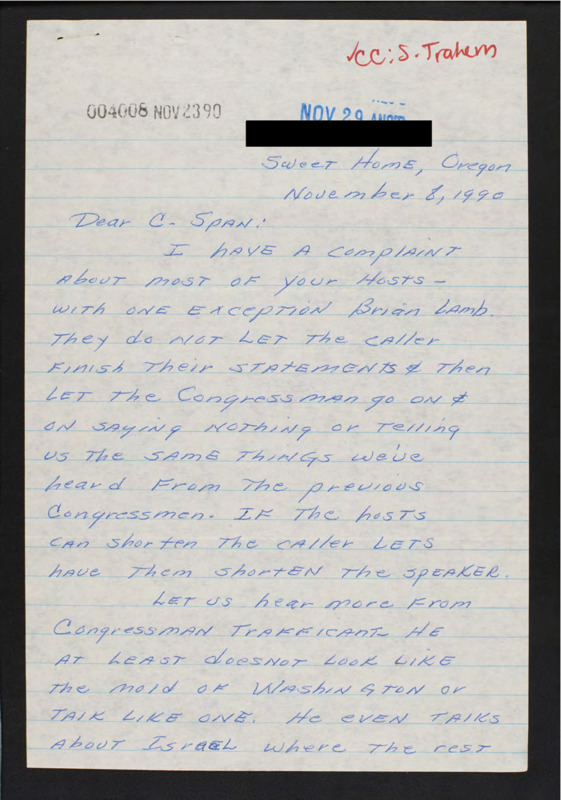 ✓CC: S. Trahern
004008 NOV 23 90
NOV 29
Sweet Home, Oregon
November 8, 1990
Dear C-Span:
I have a complaint
about most of your Hosts –
with one exception Brian Lamb.
They do not let the caller
finish their statements & then
let the Congressman go on &
on saying nothing or telling
us the same things we've
heard from the previous
Congressmen. If the hosts
can shorten the caller lets
have them shorten the speaker.
Let us hear more from
Congressman Trafficant. He
at least doesnot look like
the mold of Washington or
talk like one. He even talks
about Israel where the rest